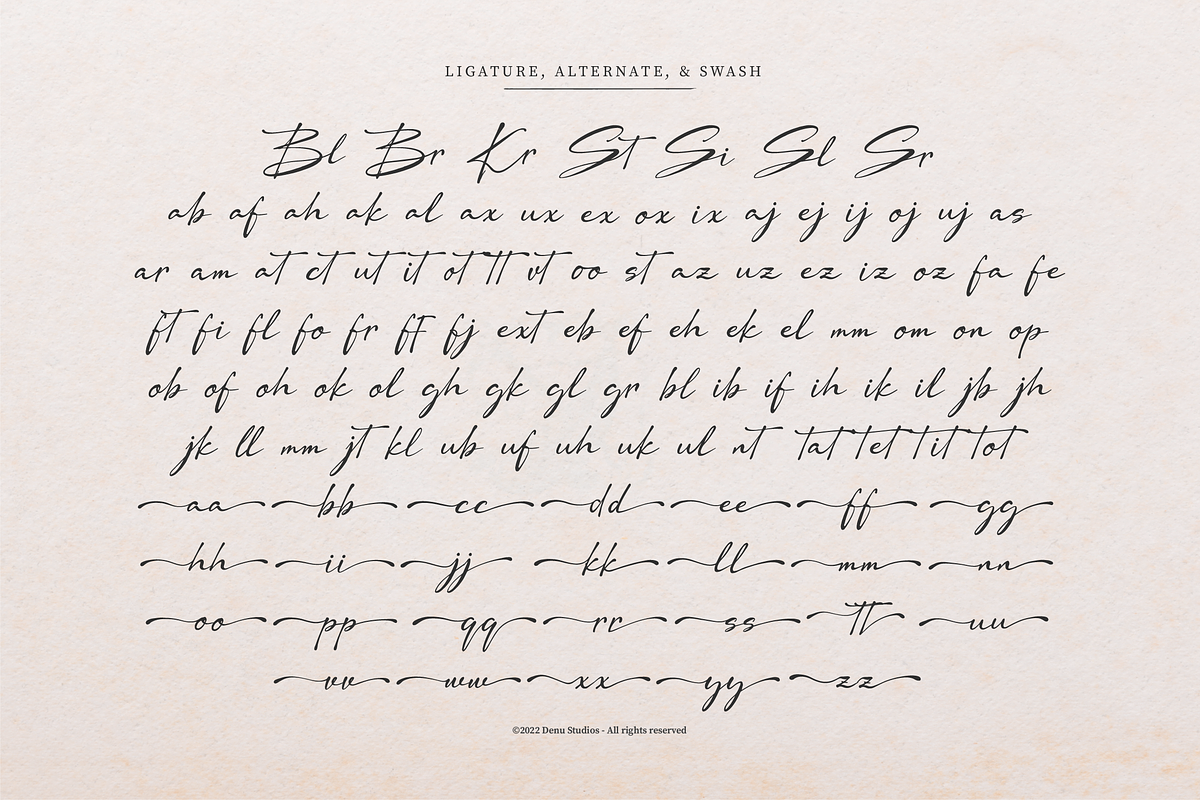 LIGATURE, ALTERNATE, & SWASH
Bl Br Kr St Si Sl Sr
ab af ah ak al ax ux ex ox ix aj ej ij oj uj as
ar am at ct ut it ot tt vt oo st az uz ez iz oz fa fe
ft fi fl fo fr ff fj ext eb ef eh ek el mm om on op
ob of oh ok ol gh gk gl gr bl ib if ih ik il jb jh
jk ll mm jt kl ub uf uh uk ul nt tat tet tit tot
aa bb cc dd ee ff gg
hh ii jj kk ll mm nn
oo pp qq rr ss tt uu
vv ww xx yy zz
©2022 Denu Studios - All rights reserved